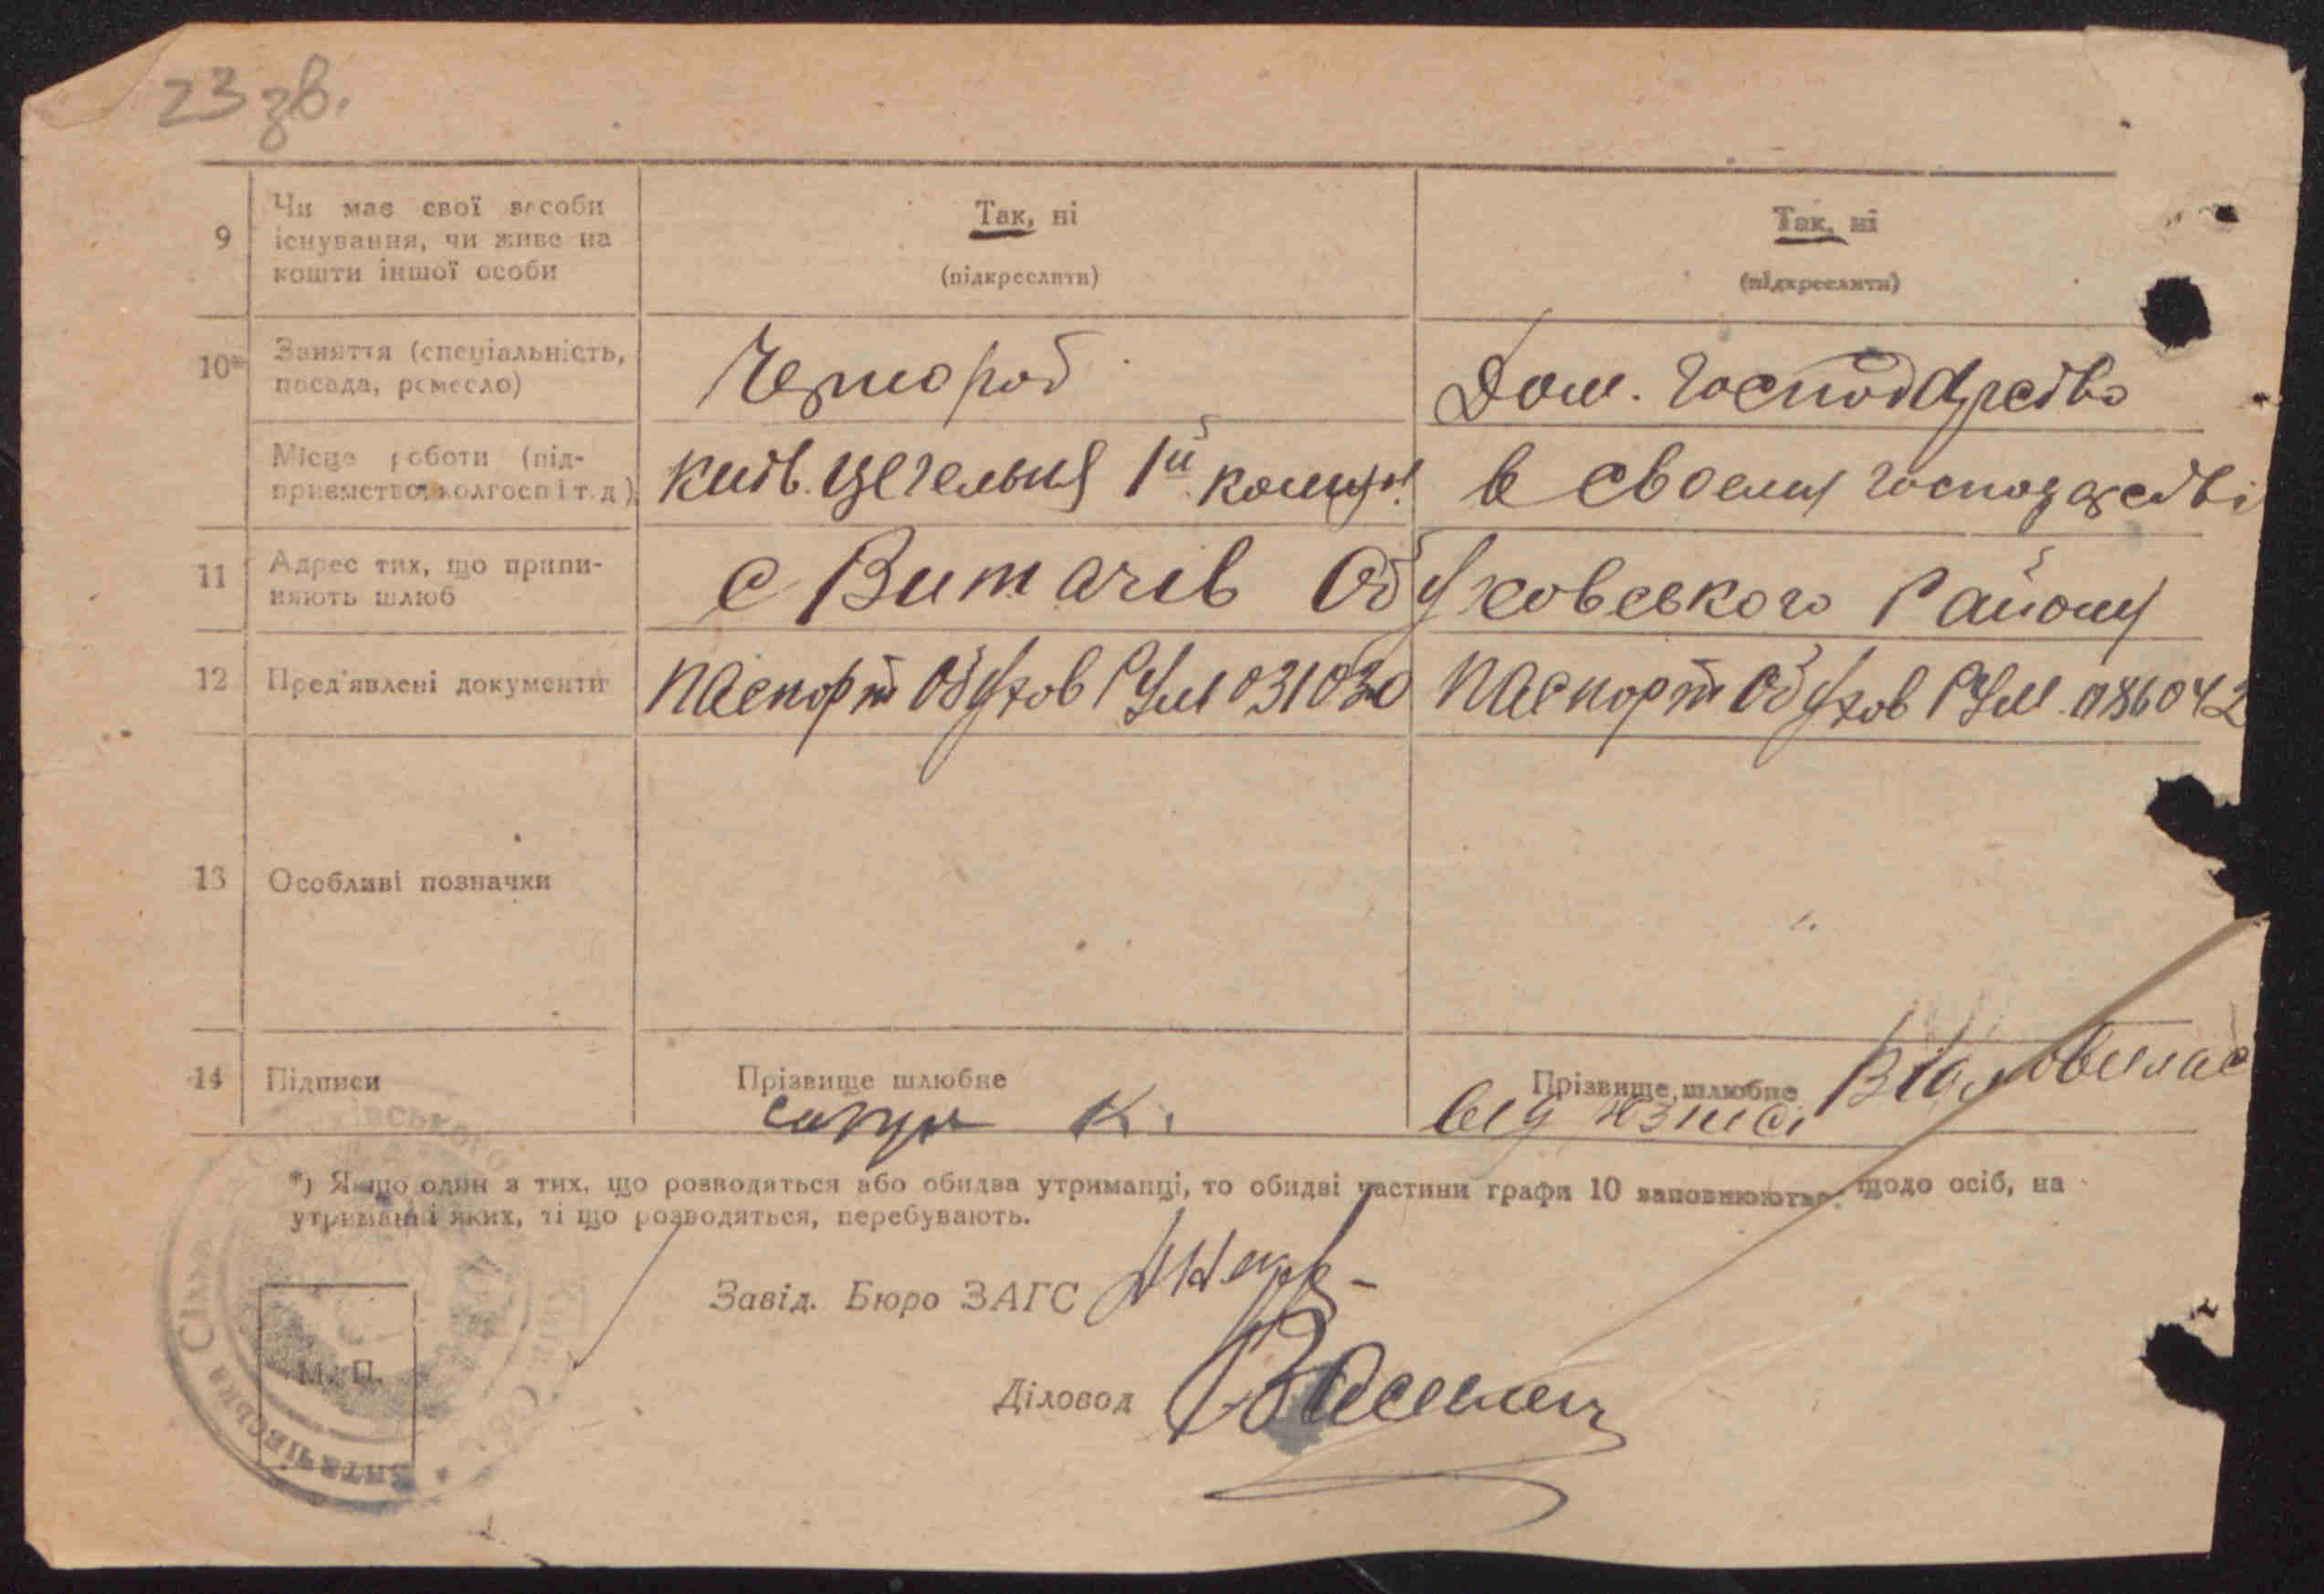 23 зв.
9
Чи має свої засоби
існування, чи живе на
кошти іншої особи
Так, ні
(підкреслити)
Так, ні
(підкреслити)
10*
Заняття (спеціальність,
посада, ремесло)
Чернороб
Дом. господарство
Місце роботи (під-
приємство, колгосп і т. д.)
Київ. цегельня 1й
в своєму господарстві
11
Адрес тих, що припи-
няють шлюб
с Витачів Обуховського Району
12
Пред'явлені документи
паспорт Обухов РУМ 031030
паспорт Обухов РУМ 086042
13
Особливі позначки
14
Підписи
Прізвище шлюбне
К.
Прізвище шлюбне
*) Якщо один з тих, що розводяться або обидва утриманці, то обидві частини графи 10 заповнюються щодо осіб, на
утриманні яких, ті що розводяться, перебувають.
Завід. Бюро ЗАГС
Діловод
М. П.